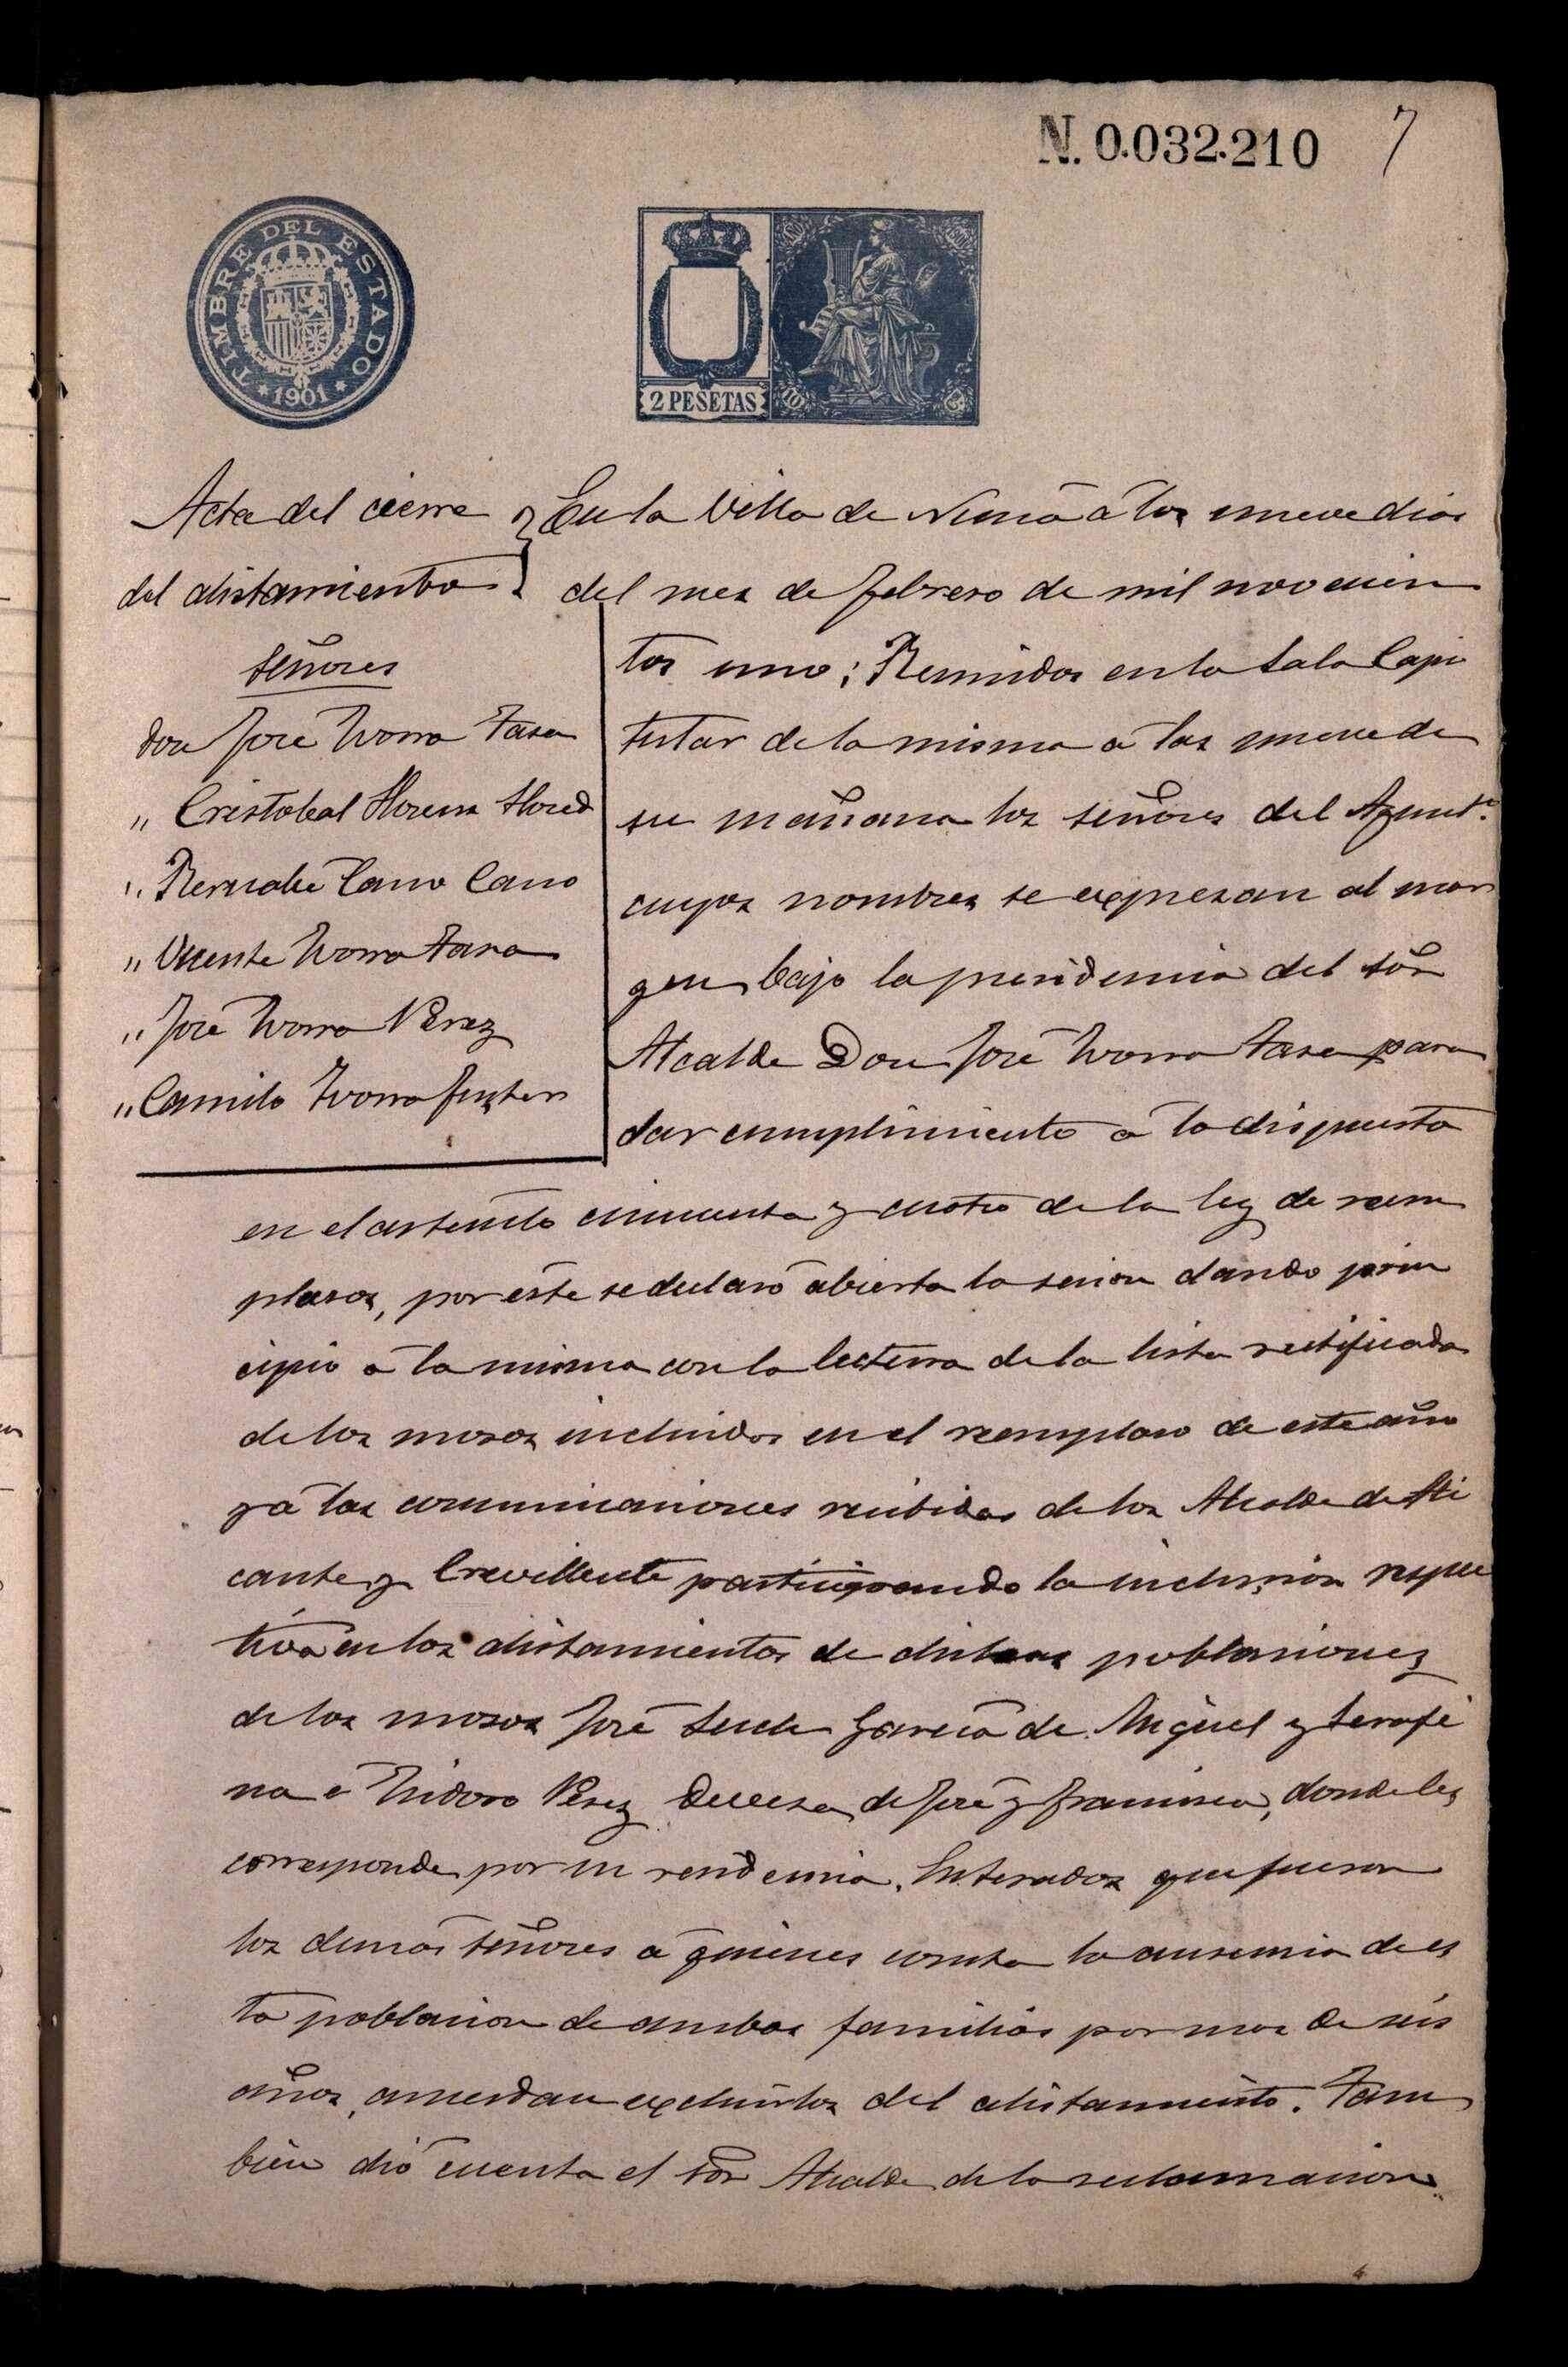 N. 0.032.210 7
TIMBRE DEL ESTADO
1901
2 PESETAS
Acta del cierre
del alistamiento
Señores
Don José Ivorra
" Cristobal Llorens
" Bernabe Cano Cano
" Vicente Ivorra
" José Ivorra Perez
" Camilo Ivorra Fuster
En la Villa de Nucia á los nueve dias
del mes de febrero de mil novecien
tos uno; Reunidos en la Sala Capi
tular de la misma á las nueve de
su mañana los señores del Ayunt.º
cuyos nombres se expresan al mar
gen bajo la presidencia del Sõr
Alcalde Don José Ivorra para
dar cumplimiento á lo dispuesto
en el articulo cincuenta y cuatro de la ley de reem
plasos, por este se declaró abierta la sesion dando prin
cipio á la misma con la lectura de la lista rectificada
de los mosos incluidos en el reemplaso de este año
y á las comunicaciones recibidas de los Alcalde de Ali
cante y Crevillente participando la inclusion respec
tiva en los alistamientos de dichas poblaciones
de los mosos José García de Miguel y Serafi
na é Isidoro Perez Devesa de José y Francisca, donde les
corresponde por su residencia. Enterados que fueron
los demás señores á quienes consta la ausencia de es
ta poblacion de ambas familias por mas de seis
años, acuerdan excluirlos del alistamiento. Tam
bien dió cuenta el Sõr Alcalde de la reclamacion